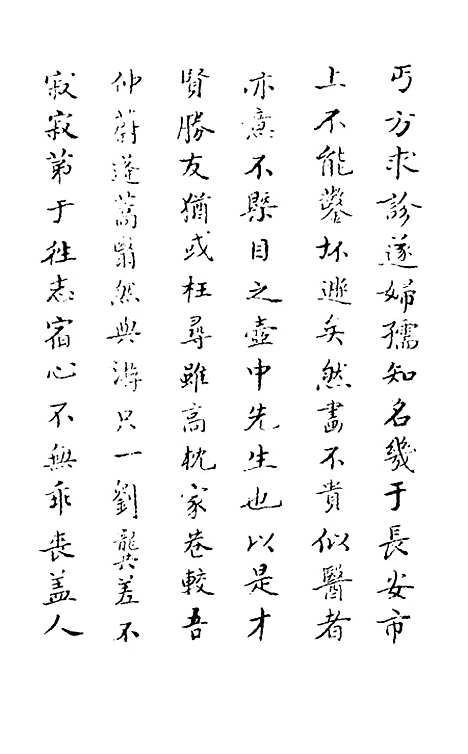 丐方求診遂婦孺知名幾于長安市
上不能鑿坏遯矣然畫不貴似醫者
亦意不縣目之壺中先生也以是才
賢勝友猶或枉尋雖高枕家巷較吾
仲蔚蓬蒿翳然與游只一劉龔差不
寂寂第于徃志宿心不無乖喪盖人